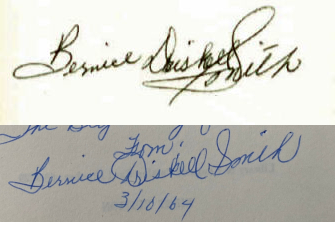 Bernice Driskell Smith
From:
Bernice Driskell Smith
3/10/64